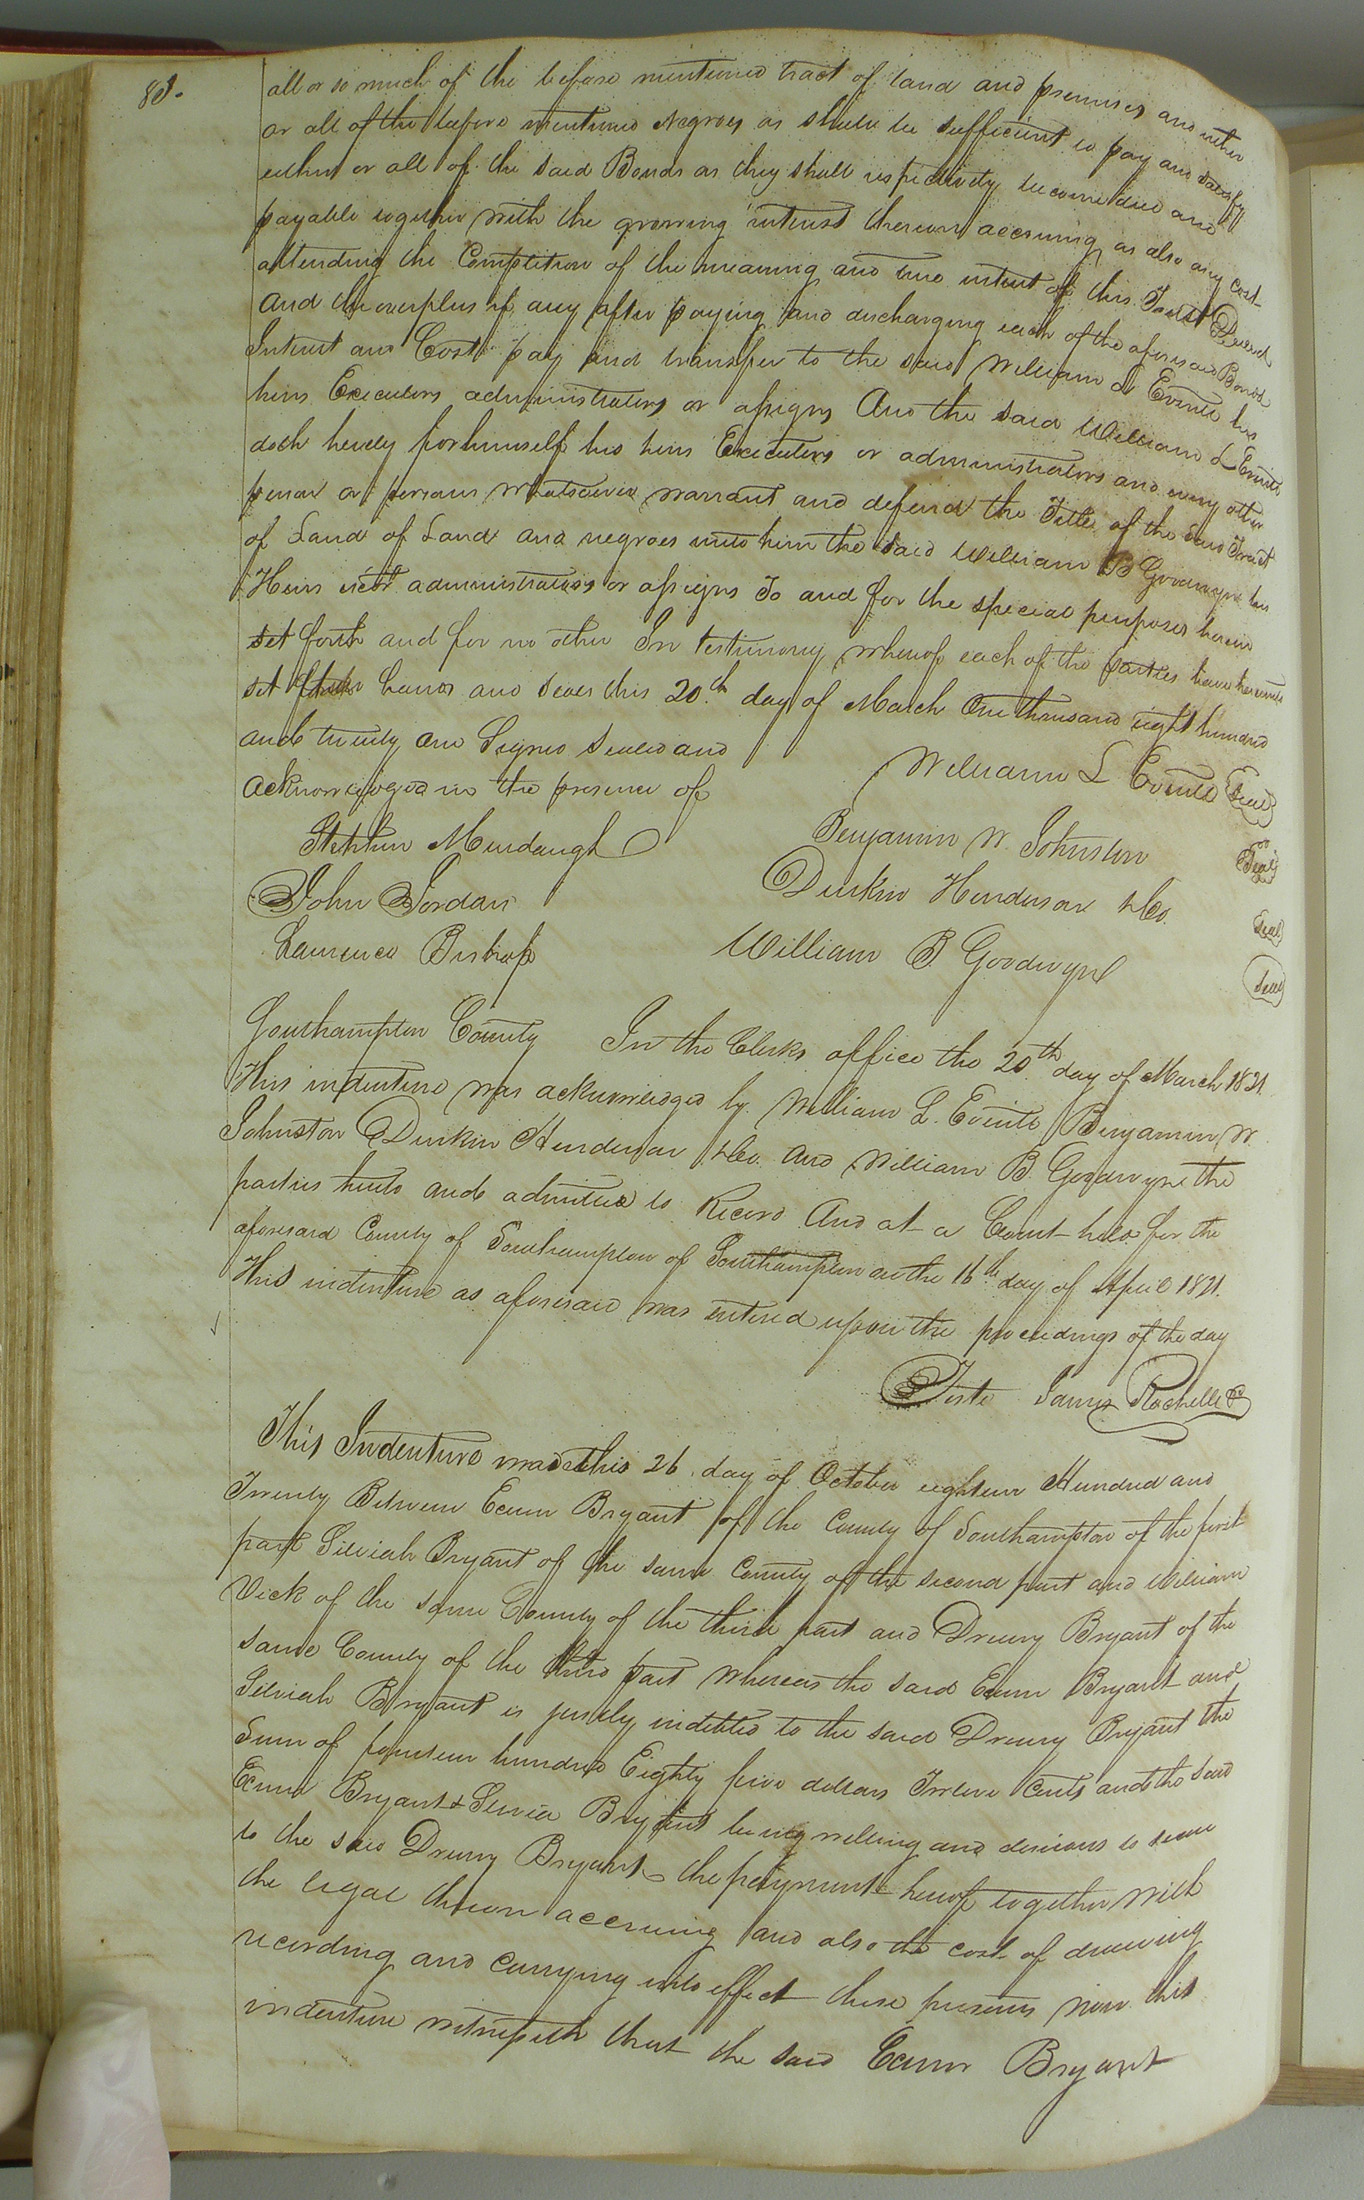 88.
all or so much of the before mentioned tract of land and premises and either
or all of the before mentioned Negroes as shall be sufficient to pay and satisfy
either or all of the said Bonds as they shall respectively become due and
payable together with the growing interest thereon accruing as also any cost
attending the Completion of the meaning and true intent of this Trust Deed
And the overplus if any after paying and discharging each of the aforesaid Bonds
Interest and Cost pay and transfer to the said William L Everitt his
heirs Executors administrators or assigns And the said William L Everitt
doth hereby for himself his heirs Executors or administrators and every other
person or persons whatsoever warrant and defend the Title of the said Tract
of Land of Land and negroes unto him the said William B Goodwyn his
Heirs administrators or assigns To and for the special purposes herein
set forth and for no other In testimony whereof each of the parties have hereunto
set their hands and seals this 20th day of March One thousand eight hundred
and twenty one Signed Sealed and
acknowledged in the presence of
William L Everitt Seal
Stephen Murdaugh
Benjamin W. Johnston Seal
John Jordan
Durkin Henderson & Co. Seal
Laurence Bishop
William B. Goodwyn Seal
Southampton County In the Clerks office the 20th day of March 1821.
This indenture was acknowledged by William L. Everitt Benjamin W.
Johnston Durkin Henderson & Co. And William B. Goodwyn the
parties hereto and admitted to Record And at a Court held for the
aforesaid County of Southampton of Southampton on the 16th day of April 1821.
This indenture as aforesaid was entered upon the proceedings of the day
Teste James Rochelle
This Indenture made this 26 day of October eighteen Hundred and
Twenty Between Exum Bryant of the County of Southampton of the first
part Silviah Bryant of the same County of the second part and William
Vick of the same County of the third part and Drewry Bryant of the
same County of the third part Whereas the said Exum Bryant and
Silviah Bryant is justly indebted to the said Drewry Bryant the
Sum of fourteen hundred Eighty five dollars Twelve Cents and the said
Exum Bryant & Silvia Bryant being willing and desirous to secure
to the said Drewry Bryant the payment hereof together with
the legal thereon accruing and also the cost of drawing
recording and carrying into effect these presents now this
indenture witnesseth that the said Exum Bryant